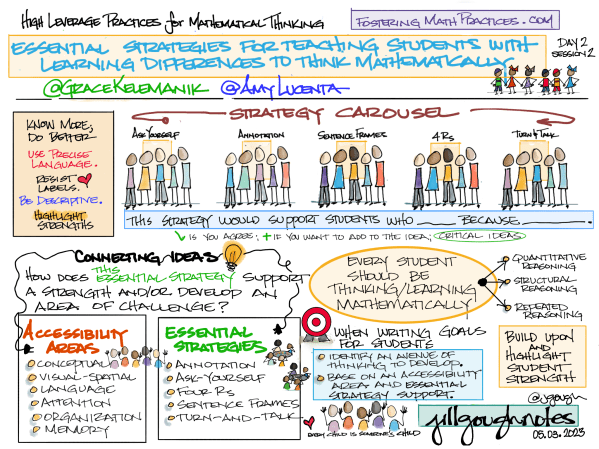 High Leverage Practices for Mathematical Thinking
FosteringMathPractices.com
Essential Strategies for Teaching Students with
Learning Differences to Think Mathematically
Day 2
Session 2
@GraceKelemanik @AmyLucenta
Strategy Carousel
Know More,
Do Better
Use Precise
Language.
Resist
Labels.
Be Descriptive.
Highlight
Strengths
Ask Yourself
Annotation
Sentence Frames
4 Rs
Turn & Talk
This strategy would support students who ____ because ____.
is you agree; + if you want to add to the idea; critical ideas
Connecting Ideas
How does this
essential strategy support
a strength and/or develop an
area of challenge?
Every student
should be
thinking/learning
mathematically
Quantitative
Reasoning
Structural
Reasoning
Repeated
Reasoning
Accessibility
Areas
Conceptual
Visual-Spatial
Language
Attention
Organization
Memory
Essential
Strategies
Annotation
Ask-Yourself
Four Rs
Sentence Frames
Turn-and-Talk
When writing goals
for students
Identify an avenue of
thinking to develop.
Base on an accessibility
area and essential
strategy support.
Every child is someone's child
Build upon
and
highlight
student
strength
@jgough
jillgoughnotes
05.03.2023